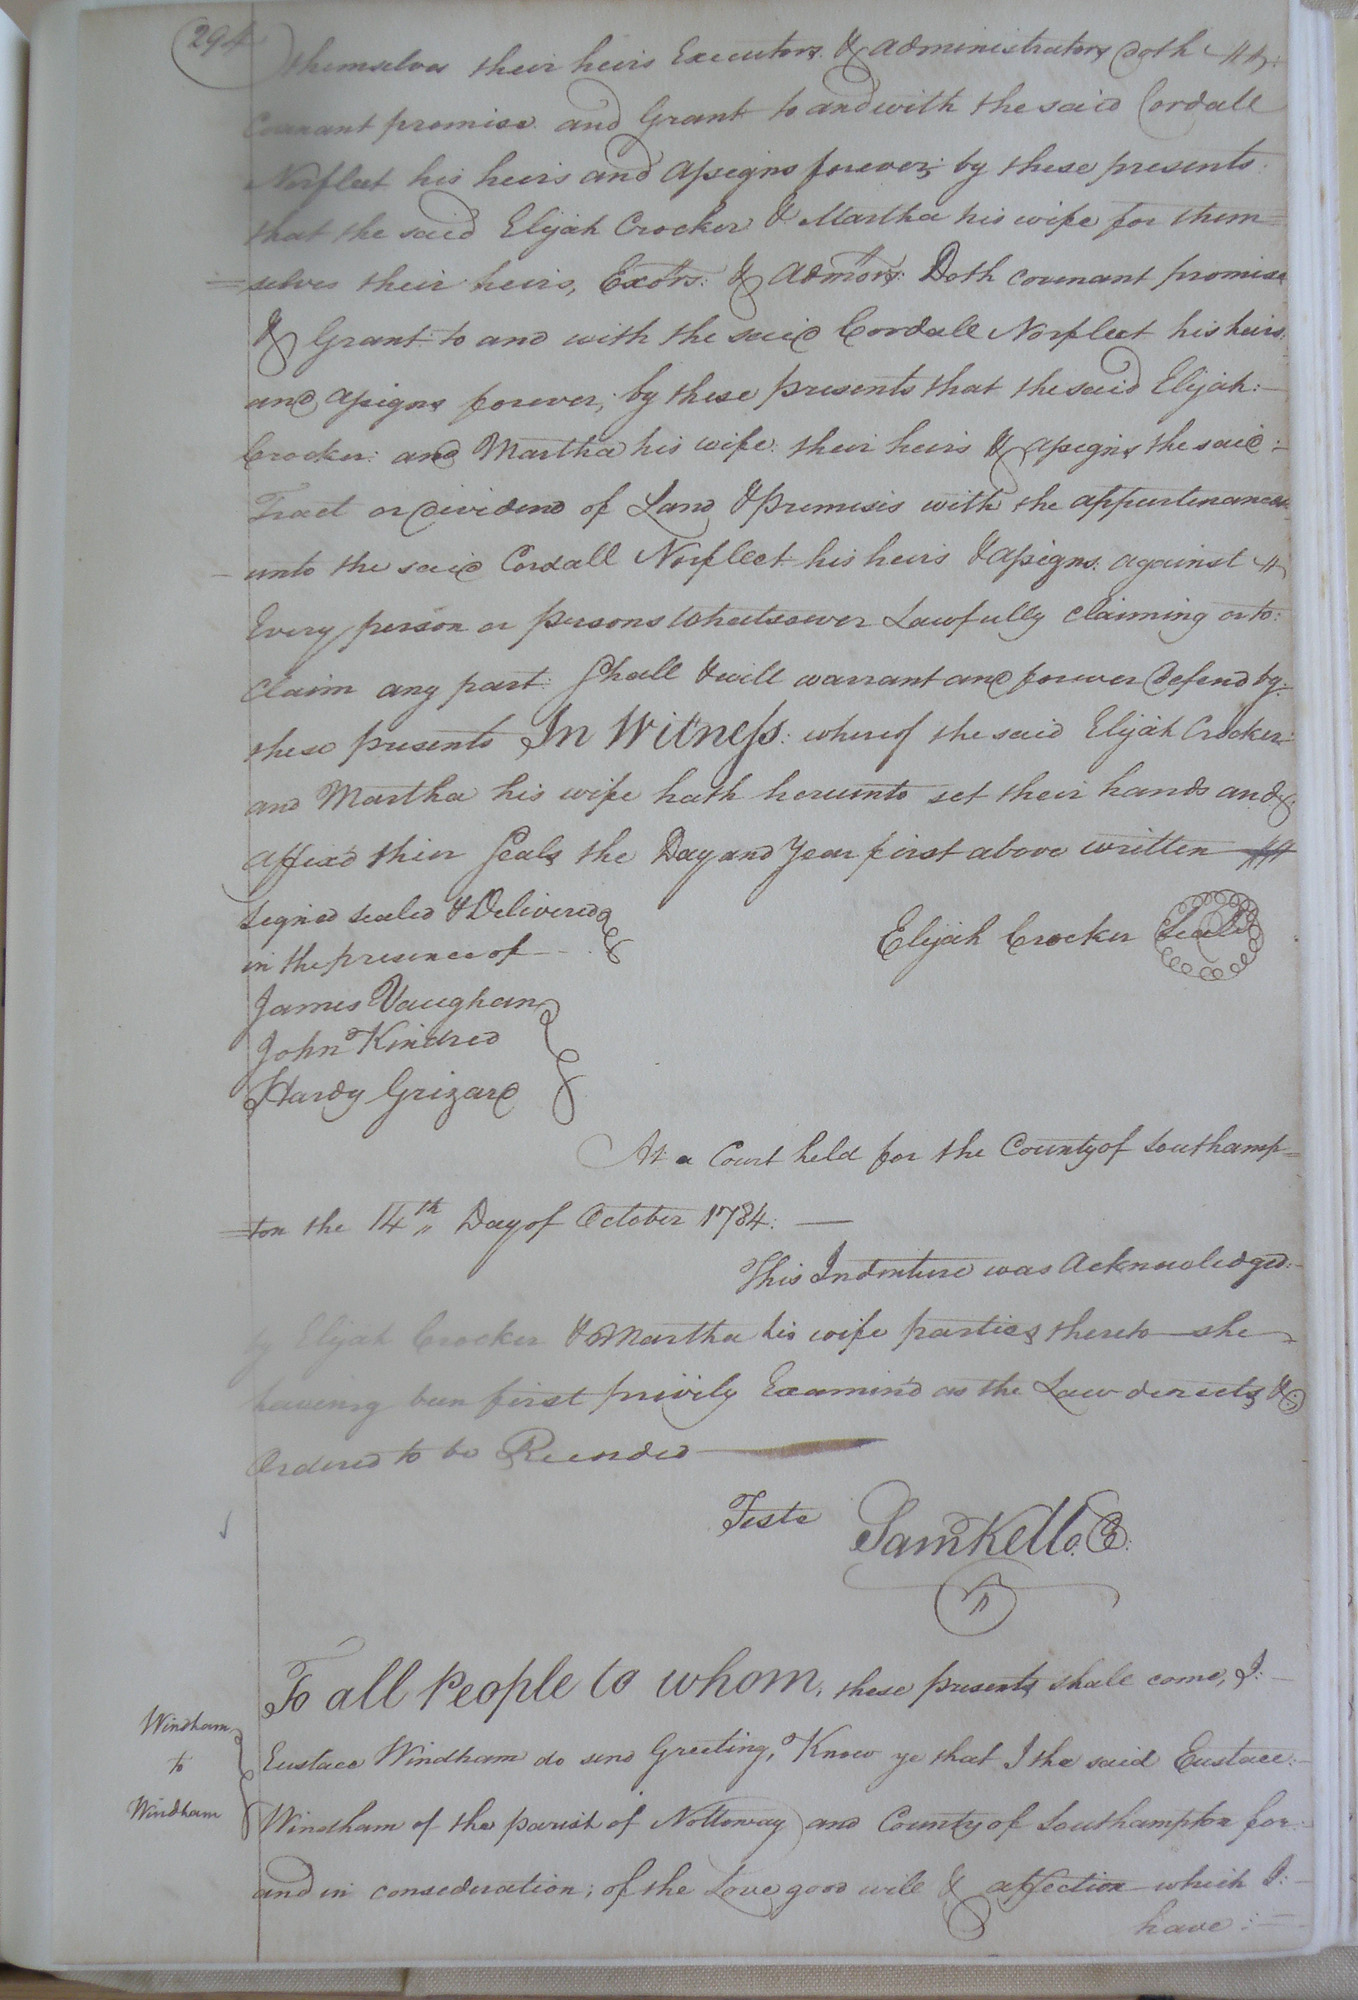 294
themselves their heirs Executors & administrators doth
Covenant promise and Grant to and with the said Cordall
Norfleet his heirs and assigns forever; by these presents
that the said Elijah Crocker & Martha his wife for them=
=selves their heirs, Exors. & Admors: Doth covenant promise
& Grant to and with the said Cordall Norfleet his heirs:
and assigns forever; by these presents that the said Elijah:
Crocker: and Martha his wife: their heirs & assigns the said:
Tract or dividend of Land & premisis with the appurtenances
unto the said Cordall Norfleet his heirs & assigns: against
Every person or persons whatsoever Lawfully claiming or to:
claim any part: Shall & will warrant and forever defend by:
these presents In Witness: whereof the said Elijah Crocker:
and Martha his wife hath hereunto set their hands and
affix'd thier Seals the Day and Year first above written
Signed sealed & Delivered
in the presence of
Elijah Crocker Seal
James Vaughan
John Kindred
Hardy Grizard
At a Court held for the County of Southamp=
=ton the 14th Day of October 1784:
This Indenture was Acknowledged:
by Elijah Crocker & Martha his wife parties thereto she
having been first privily Examin'd as the Law derects &
Ordered to be Recorded
Teste Sam Kello. C:
To all People to whom, these presents shall come, I:
Windham
to
Windham
Eustace Windham do send Greeting, Know ye that I the said Eustace:
Windham of the parish of Nottoway and County of Southampton for:
and in consederation; of the Love good will & affection which I:
have: